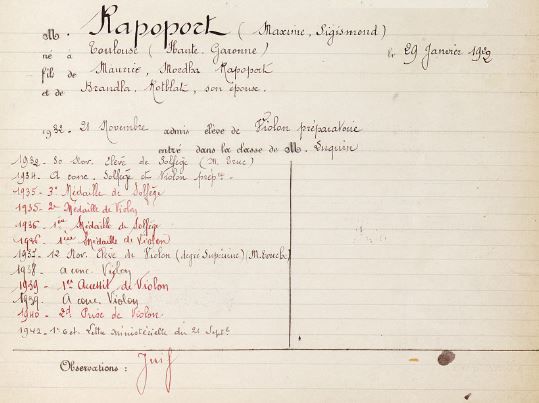 M. Rapoport (Maxime, Sigismond)
né à Toulouse (Haute-Garonne) le 29 Janvier 1922
fils de Maurice, Mordha Rapoport
et de Brandla, Rotblat, son épouse.
1932. 21 Novembre admis élève de Violon préparatoire
entré dans la classe de M. Luquin
1932. 30 Nov. Elève de Solfège (M.
1934. A conc. Solfège et Violon prépre.
1935- 3e Médaille de Solfège
1935- 2e Médaille de Violon
1936- 1ère Médaille de Solfège
1936- 1ère Médaille de Violon
12 Nov. Elève de Violon (degré Supérieur) M.
1938. a conc. Violon
1939- 1er Accessit de Violon
1939. A conc. Violon
1940- 2d Prix de Violon
1942- Lettre ministérielle du 21 Septe
Observations : Juif